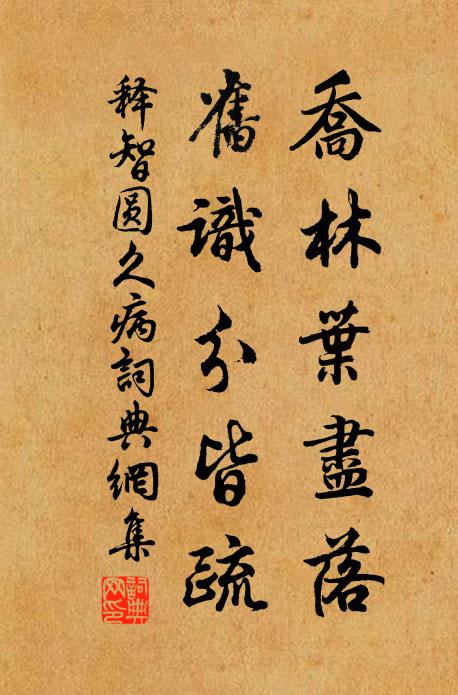 喬林葉盡落
舊識分皆疏
释智圆久病詞典網集
詞典網印